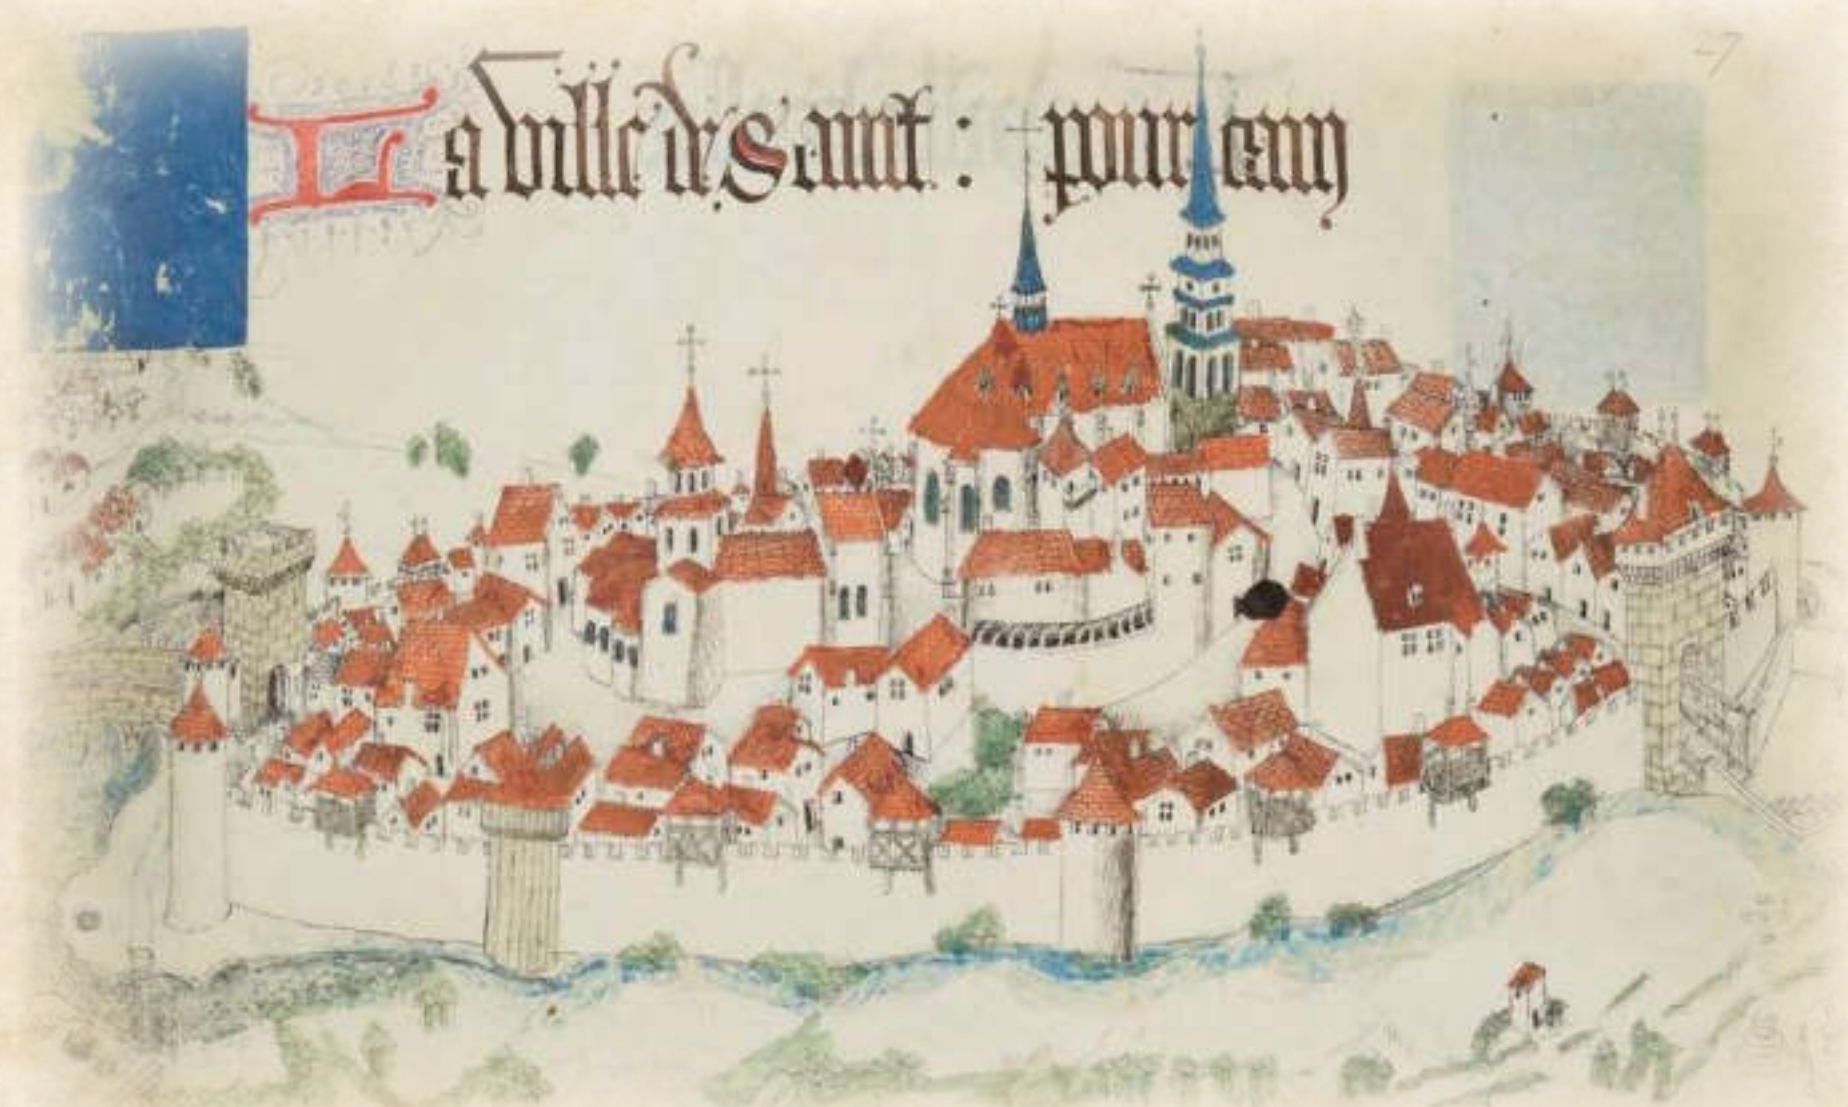 La ville de Saint : pourcain
27